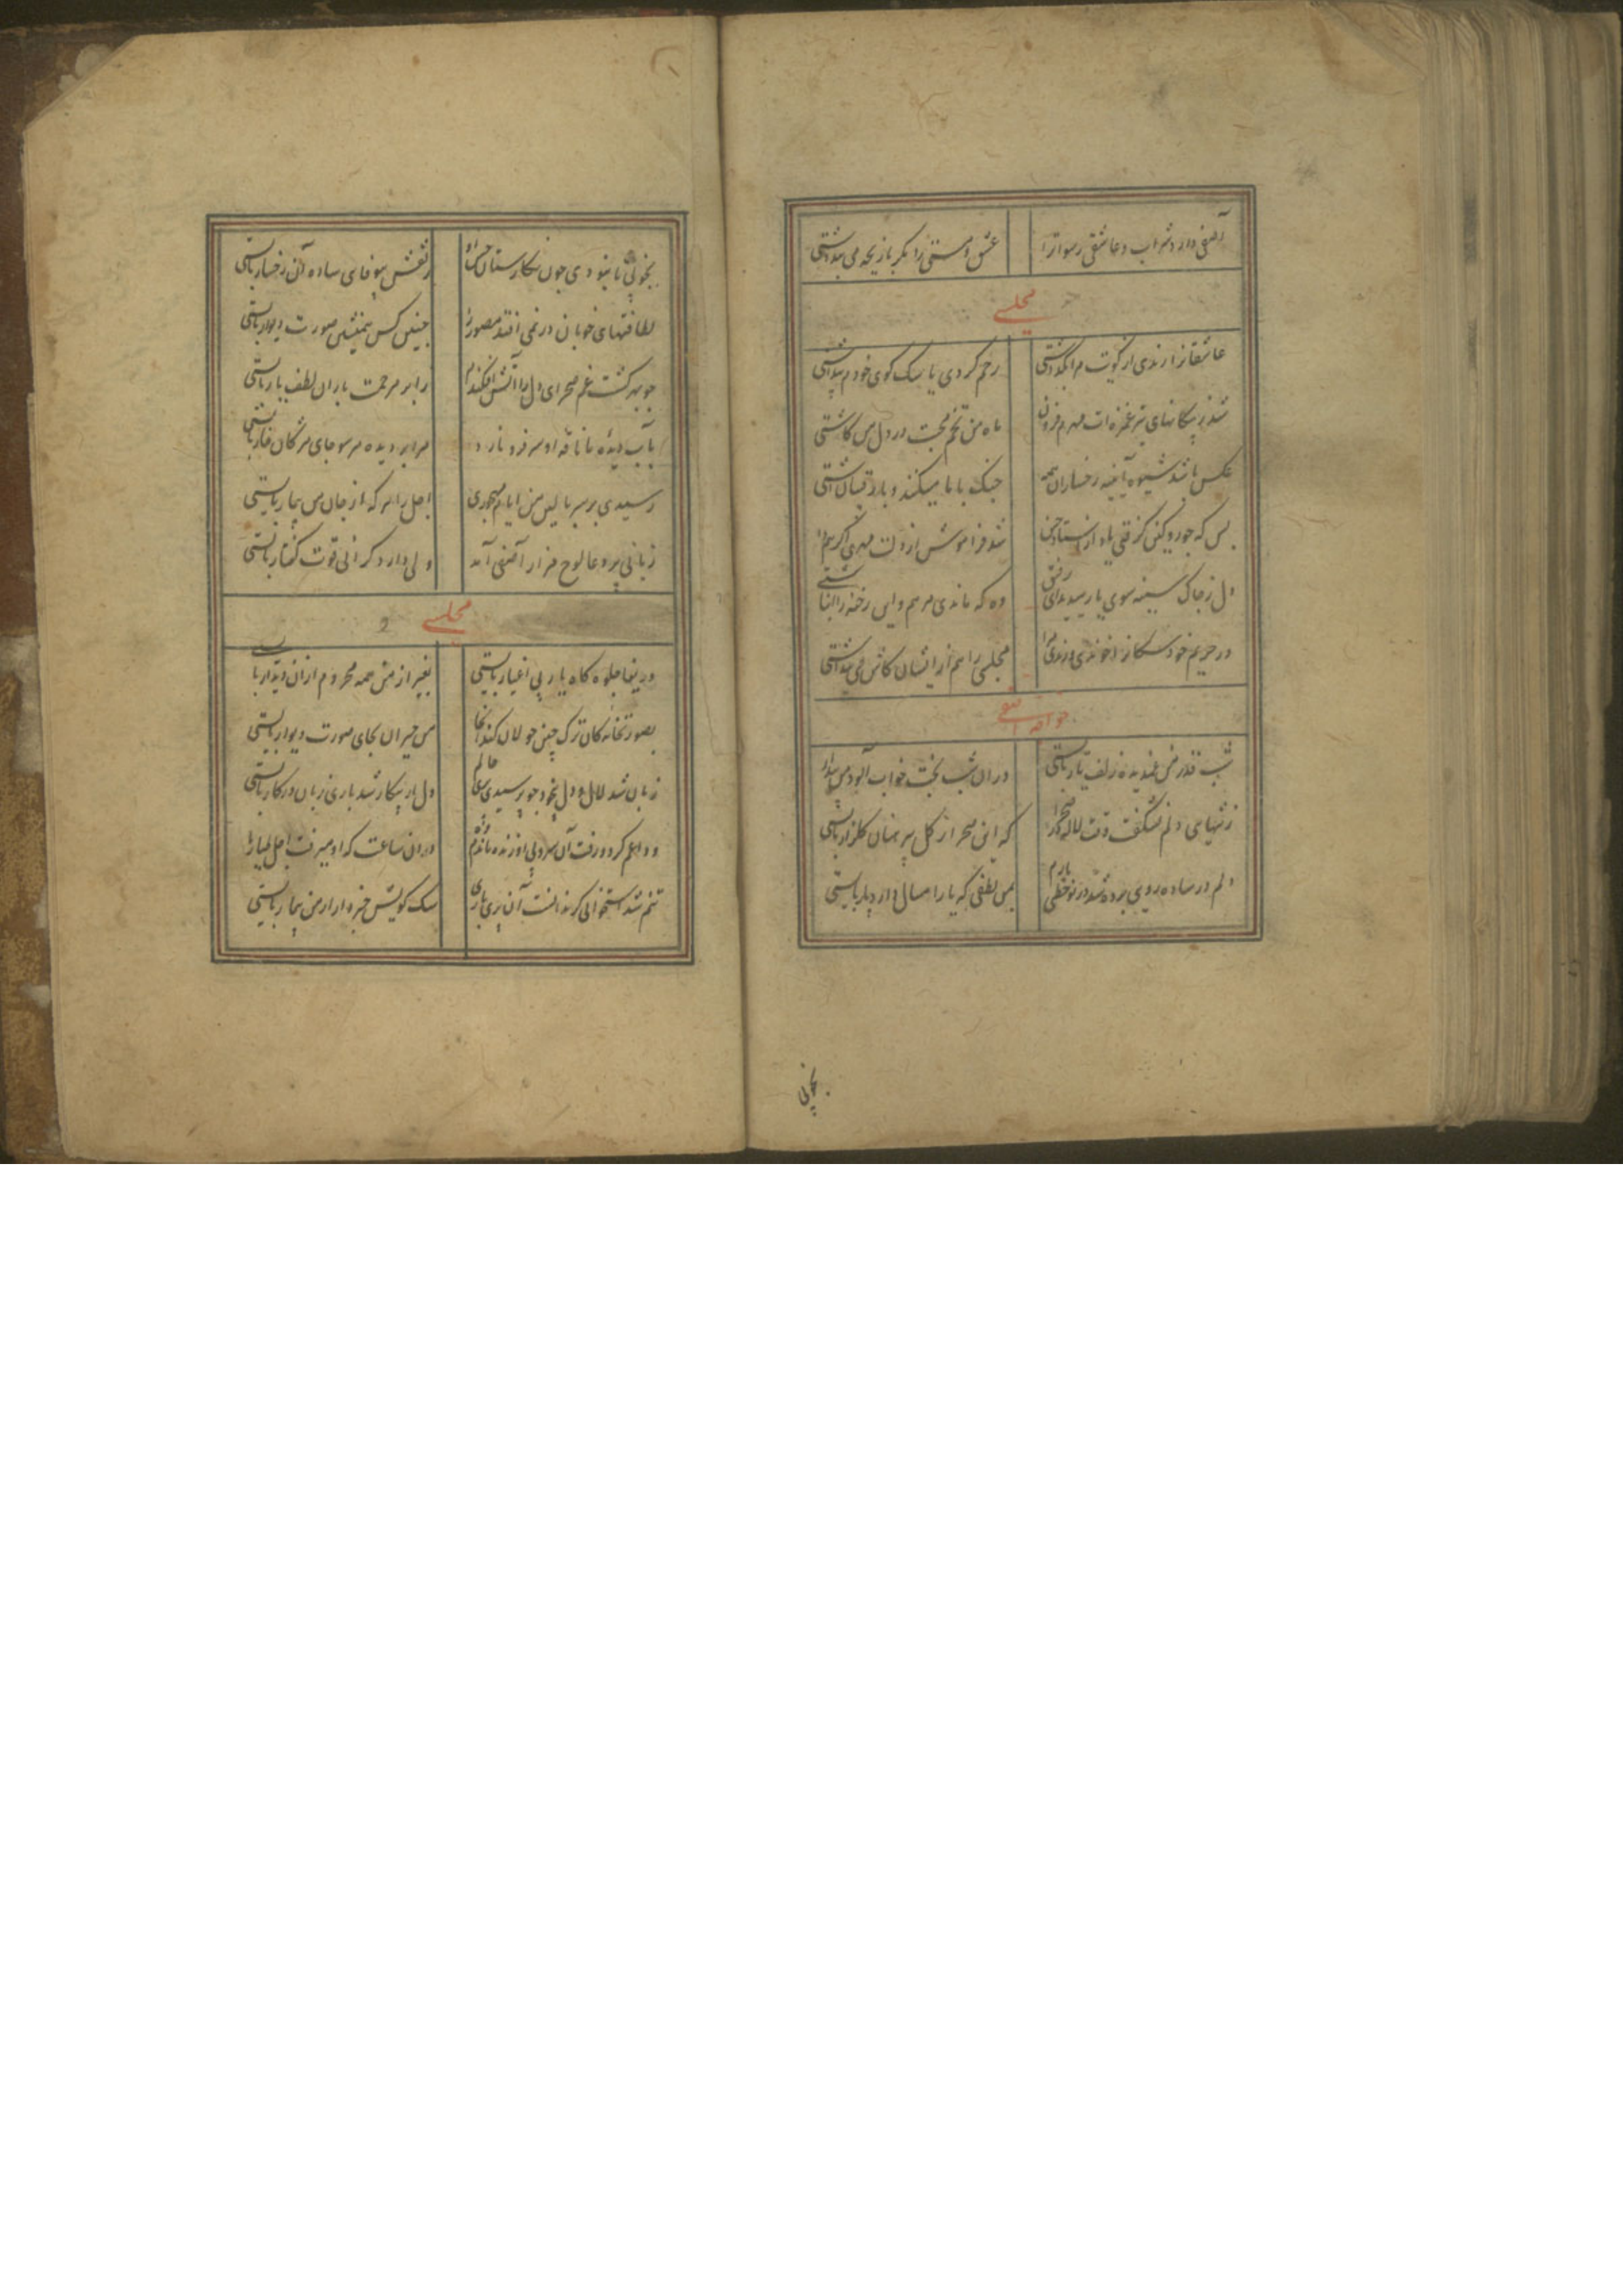 آصفی دارد شراب و عاشقی رسواترا
عشق و مستی را مگر بازیچه می پنداشتی
مجلسی
عاشقانرا رندی از کویت مرا نگذاشتی
رحم کردی یا سک کوی خودم پنداشتی
شد ز پیکانهای تیر غمزه ات مهرم فزون
ماه من تخم محبت در دل من کاشتی
عکس باشد شیوه آیینه رخساران همه
جنک با ما میکند و با رقیبان آشتی
بس که جور و کین گرفتی یاد از استاد حسن
شد فراموش از دلت مهری که
دل ز چاک سینه سوی یار میدیدای رفیق
وه که ماندی مرهم و این رخنه را انباشتی
در حریم خود سکانرا خواندی و راندی مرا
مجلسی را هم از ایشان کاش می پنداشتی
خواجه آصفی
شب قدر من غمدیده زلف یار بایستی
در ان شب بخت خواب آلود من بیدار
ز تنهایی دلم نشکفت وقت لاله در صحرا
که این صحرا از کل پیرهنان کلزار بایستی
دلم در ساده رویی برده شد در نوخطی یارم
بمن لطفی که یار امسال دارد پار بایستی
بخوبی
بخوبی تا نبودی چون نکارستان حسن او
ز نقش بیوفایی ساده آن رخسار بایستی
لطافتهای خوبان در نمی افتد مصور را
چنین کس همنشین صورت دیوار بایستی
چو بهر کشت غم صحرای دل را آتش افکندم
ز ابر مرحمت باران لطف یار بایستی
بآب دیده تا ناقه او سر فرو نارد
مرا بر دیده هر سو جای مژکان خار بایستی
رسیدی بر سر بالین من ایام مهجوری
اجل را سر که از جان من بیمار بایستی
زبانی پر دعا لوح مزار آصفی آمد
ولی دارد کرانی قوت کفتار بایستی
مجلسی
درینجا جلوه کاه یار بی اغیار بایستی
بغیر از من همه محروم ازان دیدار بایستی
بصورتخانه کان ترک چین جولان کند آنجا
من حیران بجای صورت دیوار بایستی
زبان شد لال و دل بیخود چو پرسیدی ز من حالم
دل ار بیکار شد باری زبان در کار بایستی
وداعم کرد و رفت آن سرو و بی او زنده ماندم
در ان ساعت که او میرفت اجل
تنم شد استخوانی کر ندانست آن پری باری
سک کویش خبردار از من بیمار بایستی